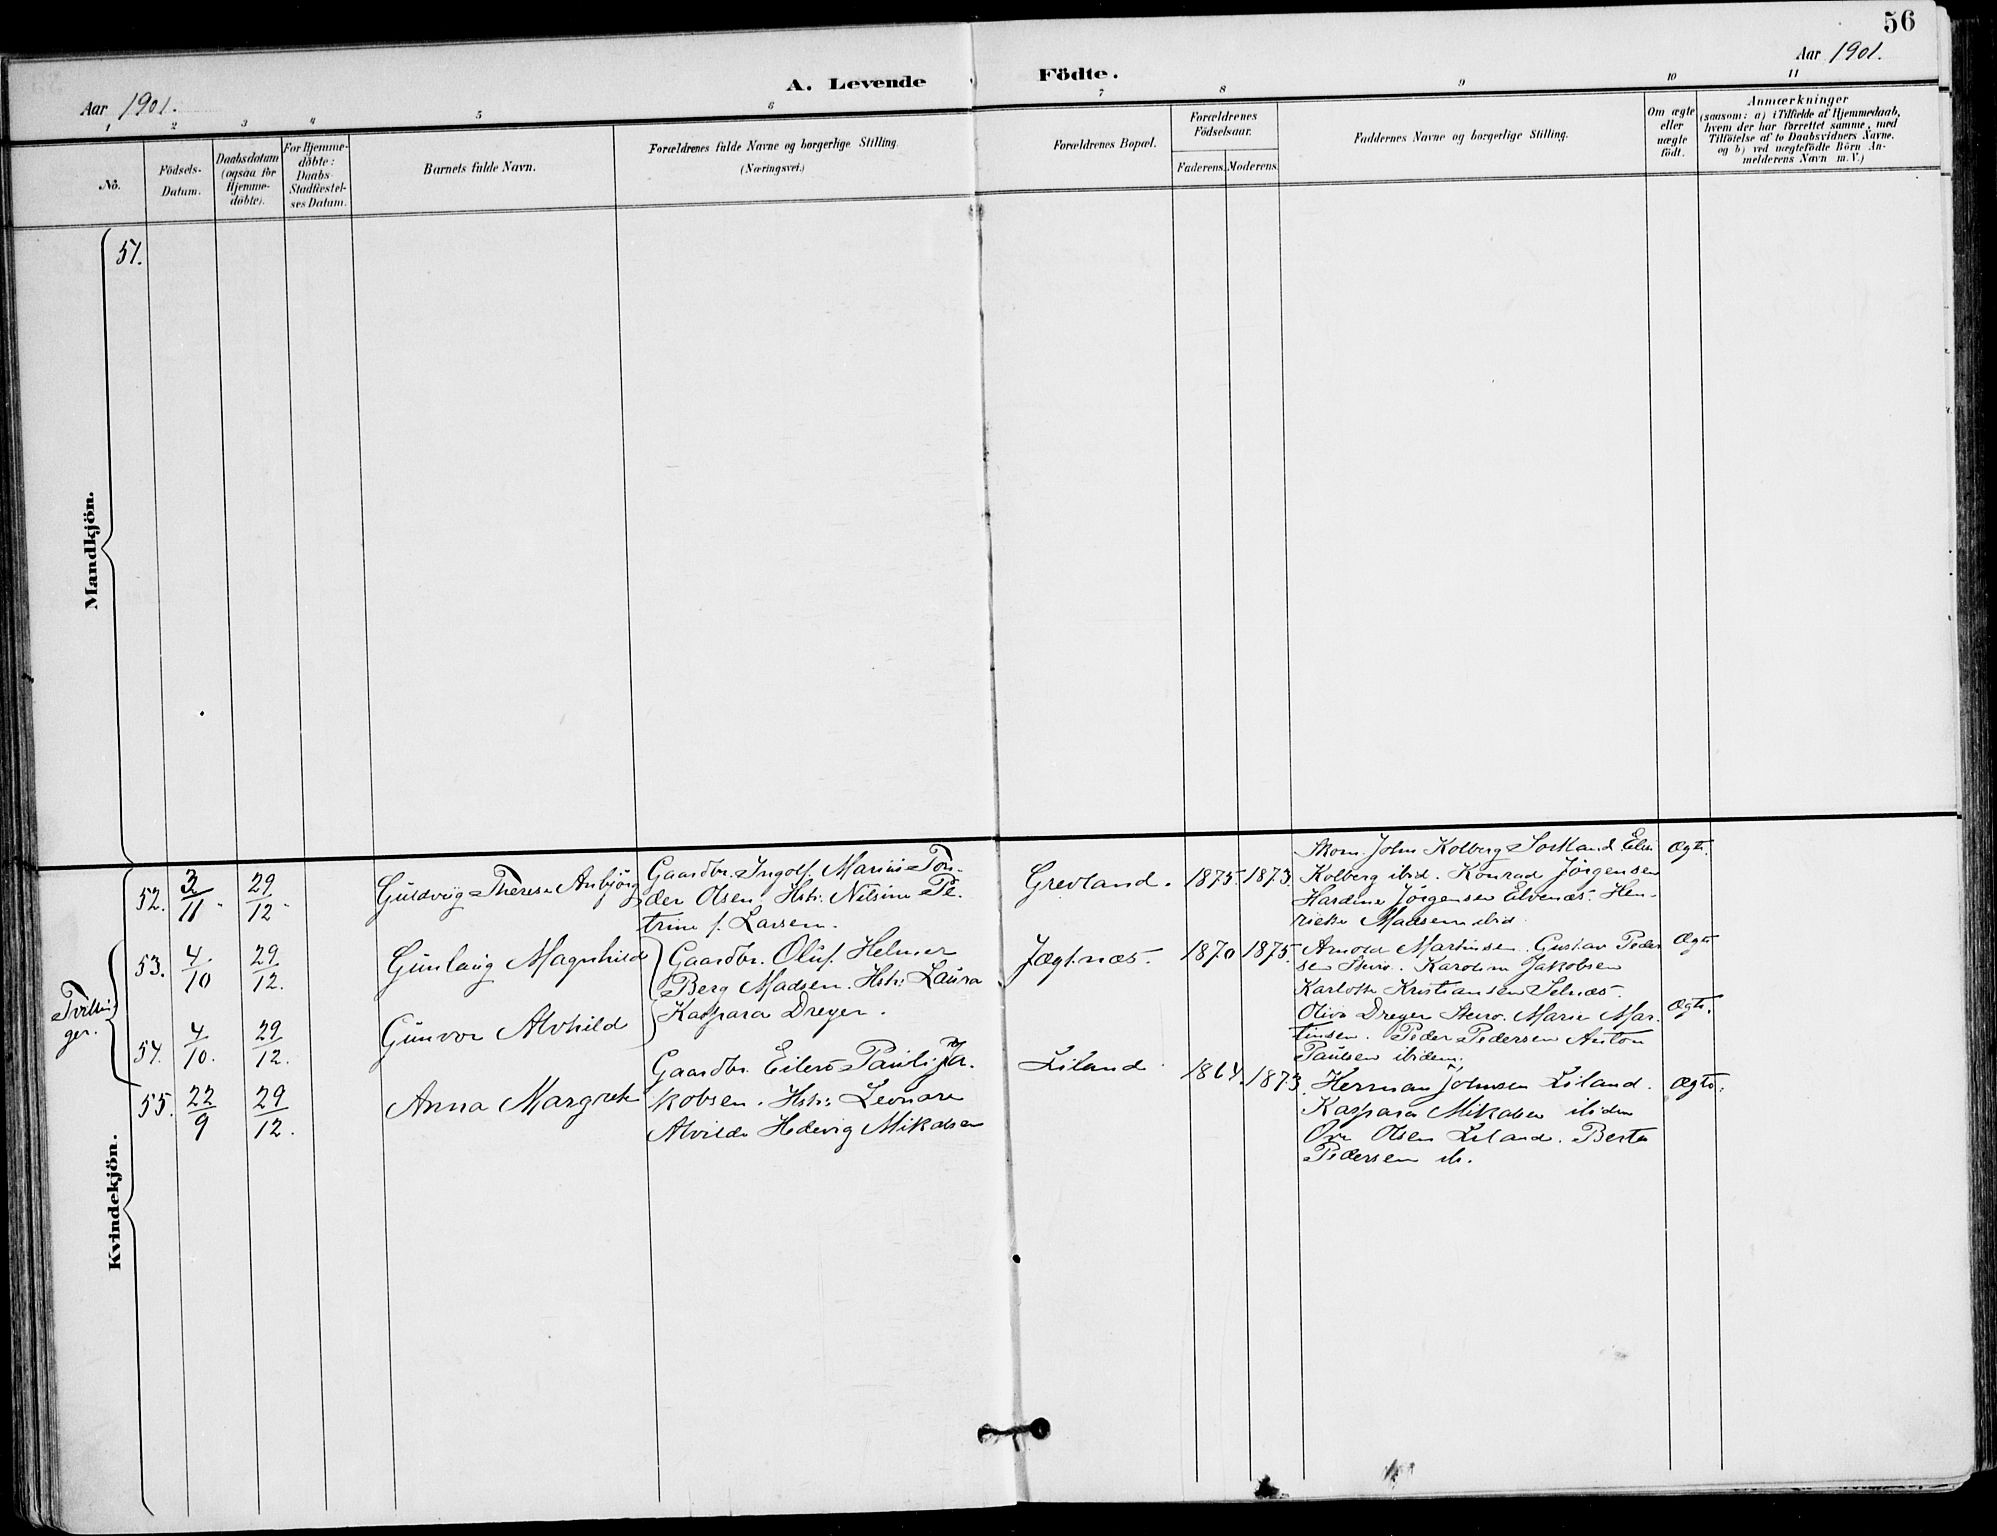 56
Aar 1901.
Aar 1901.
A. Levende Födte.
1 2 3 4 5 6 7 8 9 10 11
No.
Födsels-
Datum.
Daabsdatum
(ogsaa for
Hjemme-
döbte).
For Hjemme-
döbte:
Daabs-
Stadfæstel-
ses Datum.
Barnets fulde Navn.
Forældrenes fulde Navne og borgerlige Stilling.
(Næringsvei.)
Forældrenes Bopæl.
Forældrenes
Födselsaar.
Faderens. Moderens.
Faddernes Navne og borgerlige Stilling.
Om ægte
eller
uægte
født.
Anmærkninger
(saasom: a) i Tilfælde af Hjemmedaab,
hvem der har forrettet samme, med
Tilföielse af to Daabsvidners Navne,
og b) ved uægtefödte Börn An-
melderens Navn m. V.)
Mandkjön.
51.
Kvindekjön.
52. 3/11 29/12. Guldvig Therese Anbjörg
Gaardbr. Ingolf Marius Ton-
der Olsen Hstr. Nilsine Pe-
trine f. Larsen.
Grevland. 1875. 1873.
John Kolberg Sortland
Kolberg ibid. Konrad Jörgensen
Hardine Jörgensen Elvenæs. Hen-
rikke Madsen ibid.
Ægte.
Tvillin-
ger.
53. 4/10 29/12. Gunlaug Magnhild
Gaardbr. Oluf Helmer
Berg Madsen. Hstr. Laura
Kaspara Dreyer.
Jægtnæs. 1870 1875.
Arnold Martinsen. Gustav Peder
sen Steiro. Karoline Jakobsen
Karlotte Kristiansen Selnæs.
Ægte
54. 4/10. 29/12. Gunvor Alvhild
Oliva Dreyer Steiro. Marie Mar-
tinsen. Peder Pedersen Anton
Paulsen ibidem.
Ægte.
55. 22/9 29/12. Anna Margrethe
Gaardbr. Eilert Pauli Ja-
kobsen. Hstr. Leonore
Alvilde Hedevig Mikalsen
Liland. 1864. 1873.
Herman Johnsen Liland.
Kaspara Mikalsen ibidem
Ove Olsen Liland. Berta
Pedersen ib.
Ægte.